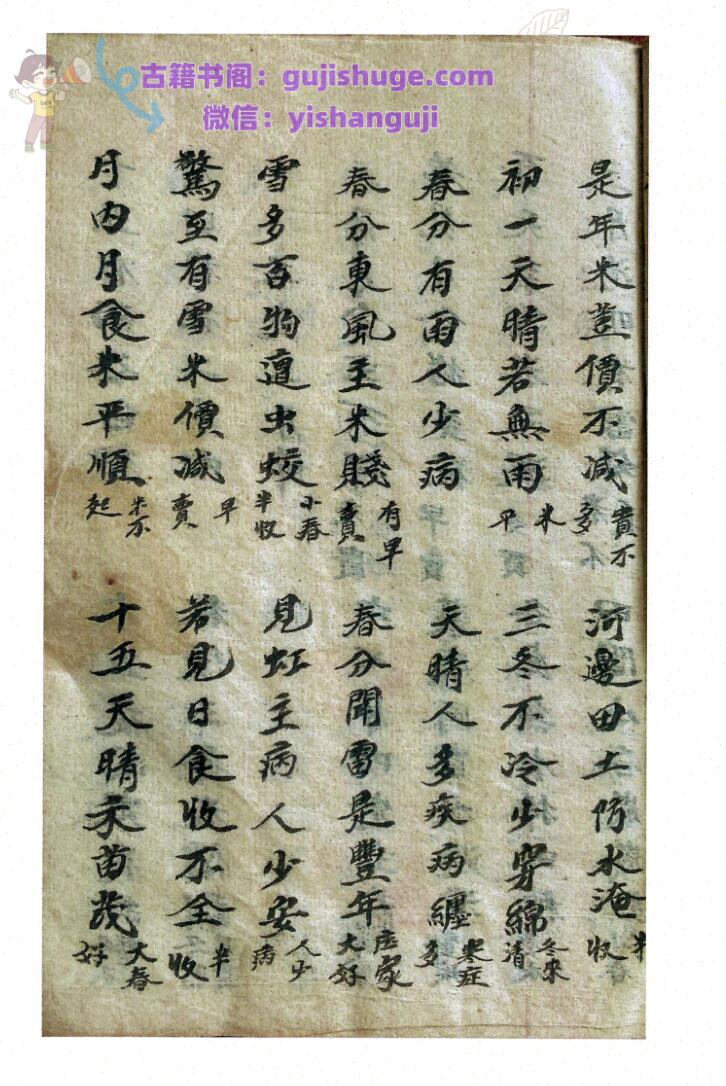 古籍书阁：gujishuge.com
微信：yishanguji
是年米荳價不减 貴不多 河邊田土防水淹 半收
初一天晴若無雨 米平 三冬不冷少穿綿 冬來清
春分有雨人少病 天晴人多疾病纏 寒症多
春分東風主米賤 有早賣 春分聞雷是豐年 庄家大好
雪多百物遭虫蛟 小春半收 見虹主病人少安 人少病
驚至有雪米價减 早賣 若見日食收不全 半收
月内月食米平順 米不起 十五天晴禾苗茂 大春好